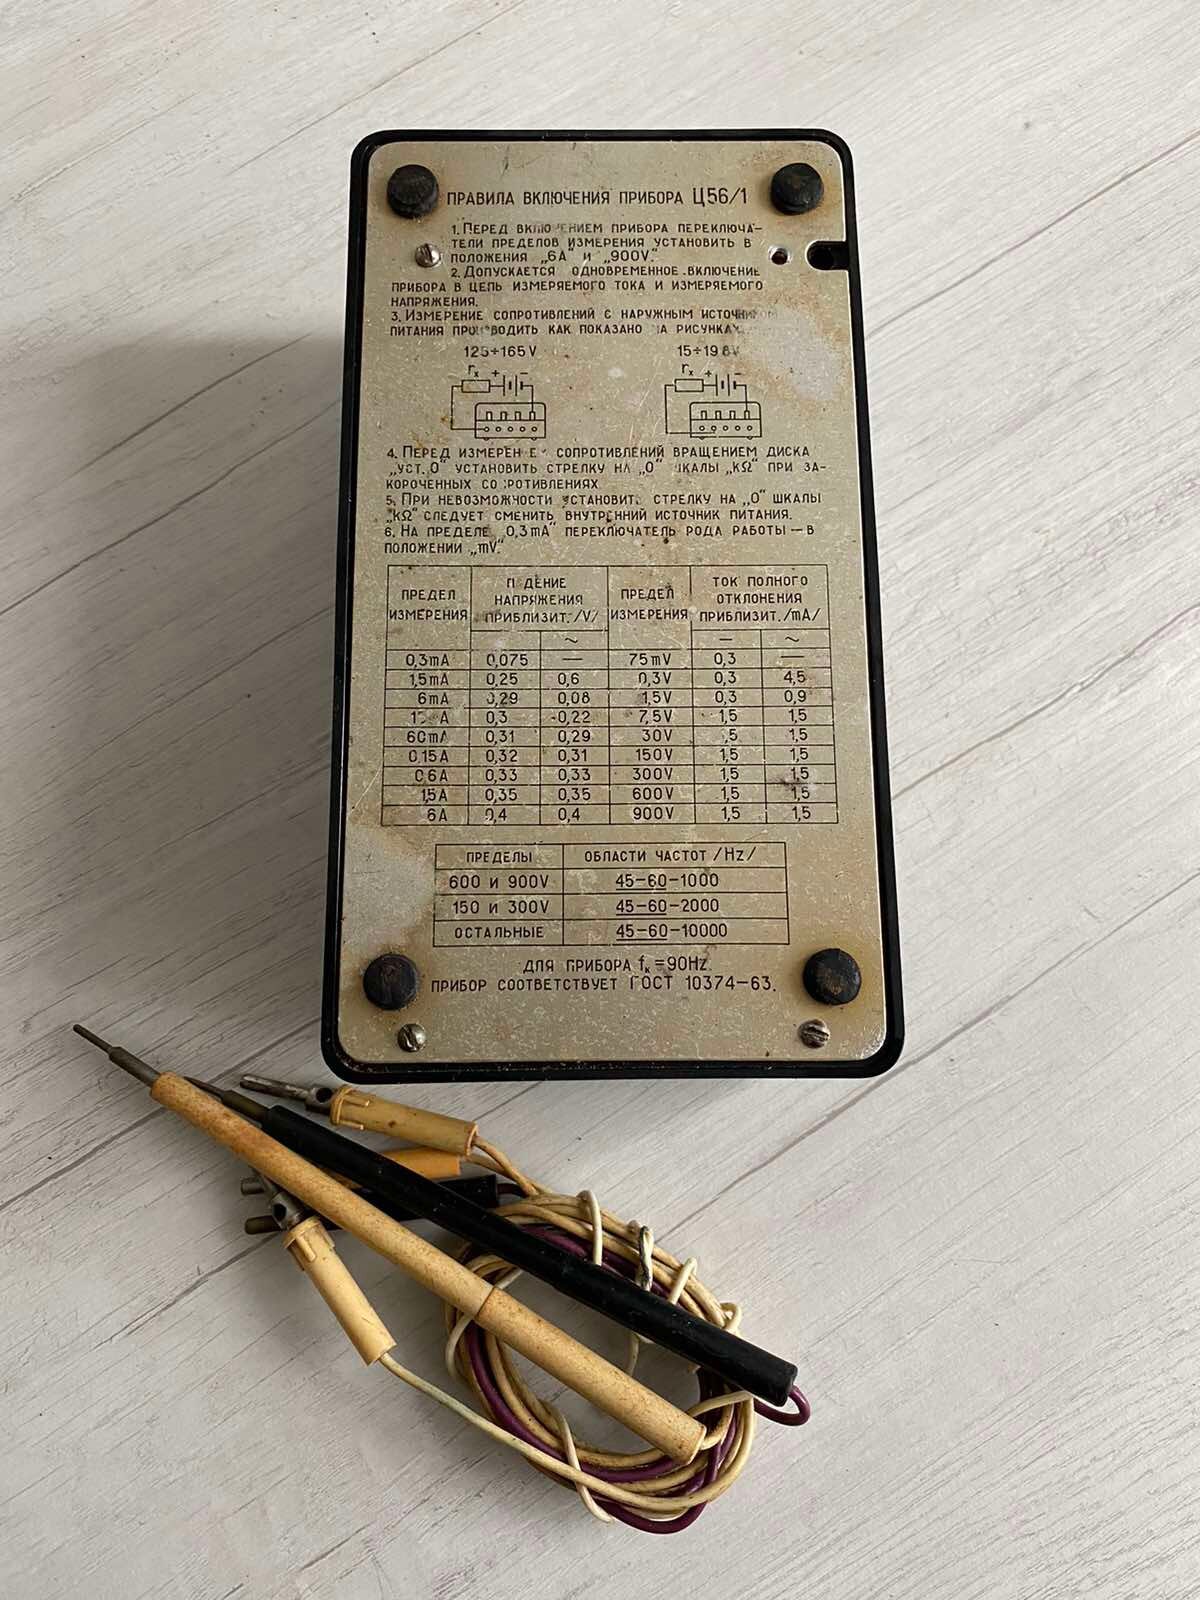 ПРАВИЛА ВКЛЮЧЕНИЯ ПРИБОРА Ц56/1
1. ПЕРЕД ВКЛЮЧЕНИЕМ ПРИБОРА ПЕРЕКЛЮЧА-
ТЕЛИ ПРЕДЕЛОВ ИЗМЕРЕНИЯ УСТАНОВИТЬ В
ПОЛОЖЕНИЯ „6А" И „900V."
2. ДОПУСКАЕТСЯ ОДНОВРЕМЕННОЕ ВКЛЮЧЕНИЕ
ПРИБОРА В ЦЕПЬ ИЗМЕРЯЕМОГО ТОКА И ИЗМЕРЯЕМОГО
НАПРЯЖЕНИЯ.
3. ИЗМЕРЕНИЕ СОПРОТИВЛЕНИЙ С НАРУЖНЫМ ИСТОЧНИКОМ
ПИТАНИЯ ПРОИЗВОДИТЬ КАК ПОКАЗАНО НА РИСУНКАХ
125÷165V 15÷19,8V
rₓ + − rₓ + −
4. ПЕРЕД ИЗМЕРЕНИЕМ СОПРОТИВЛЕНИЙ ВРАЩЕНИЕМ ДИСКА
„УСТ. 0" УСТАНОВИТЬ СТРЕЛКУ НА „0" ШКАЛЫ „kΩ" ПРИ ЗА-
КОРОЧЕННЫХ СОПРОТИВЛЕНИЯХ
5. ПРИ НЕВОЗМОЖНОСТИ УСТАНОВИТЬ СТРЕЛКУ НА „0" ШКАЛЫ
„kΩ" СЛЕДУЕТ СМЕНИТЬ ВНУТРЕННИЙ ИСТОЧНИК ПИТАНИЯ.
6. НА ПРЕДЕЛЕ „0,3mA" ПЕРЕКЛЮЧАТЕЛЬ РОДА РАБОТЫ — В
ПОЛОЖЕНИИ „mV."
ПРЕДЕЛ ИЗМЕРЕНИЯ ПАДЕНИЕ НАПРЯЖЕНИЯ ПРИБЛИЗИТ. /V/ ПРЕДЕЛ ИЗМЕРЕНИЯ ТОК ПОЛНОГО ОТКЛОНЕНИЯ ПРИБЛИЗИТ. /mA/
~ — ~
0,3mA 0,075 — 75mV 0,3 —
1,5mA 0,25 0,6 0,3V 0,3 4,5
6mA 0,29 0,08 1,5V 0,3 0,9
0,3 0,22 7,5V 1,5 1,5
60mA 0,31 0,29 30V 1,5 1,5
0,15A 0,32 0,31 150V 1,5 1,5
0,6A 0,33 0,33 300V 1,5 1,5
1,5A 0,35 0,35 600V 1,5 1,5
6A 0,4 0,4 900V 1,5 1,5
ПРЕДЕЛЫ ОБЛАСТИ ЧАСТОТ /Hz/
600 И 900V 45–60–1000
150 И 300V 45–60–2000
ОСТАЛЬНЫЕ 45–60–10000
ДЛЯ ПРИБОРА fк = 90Hz.
ПРИБОР СООТВЕТСТВУЕТ ГОСТ 10374–63.